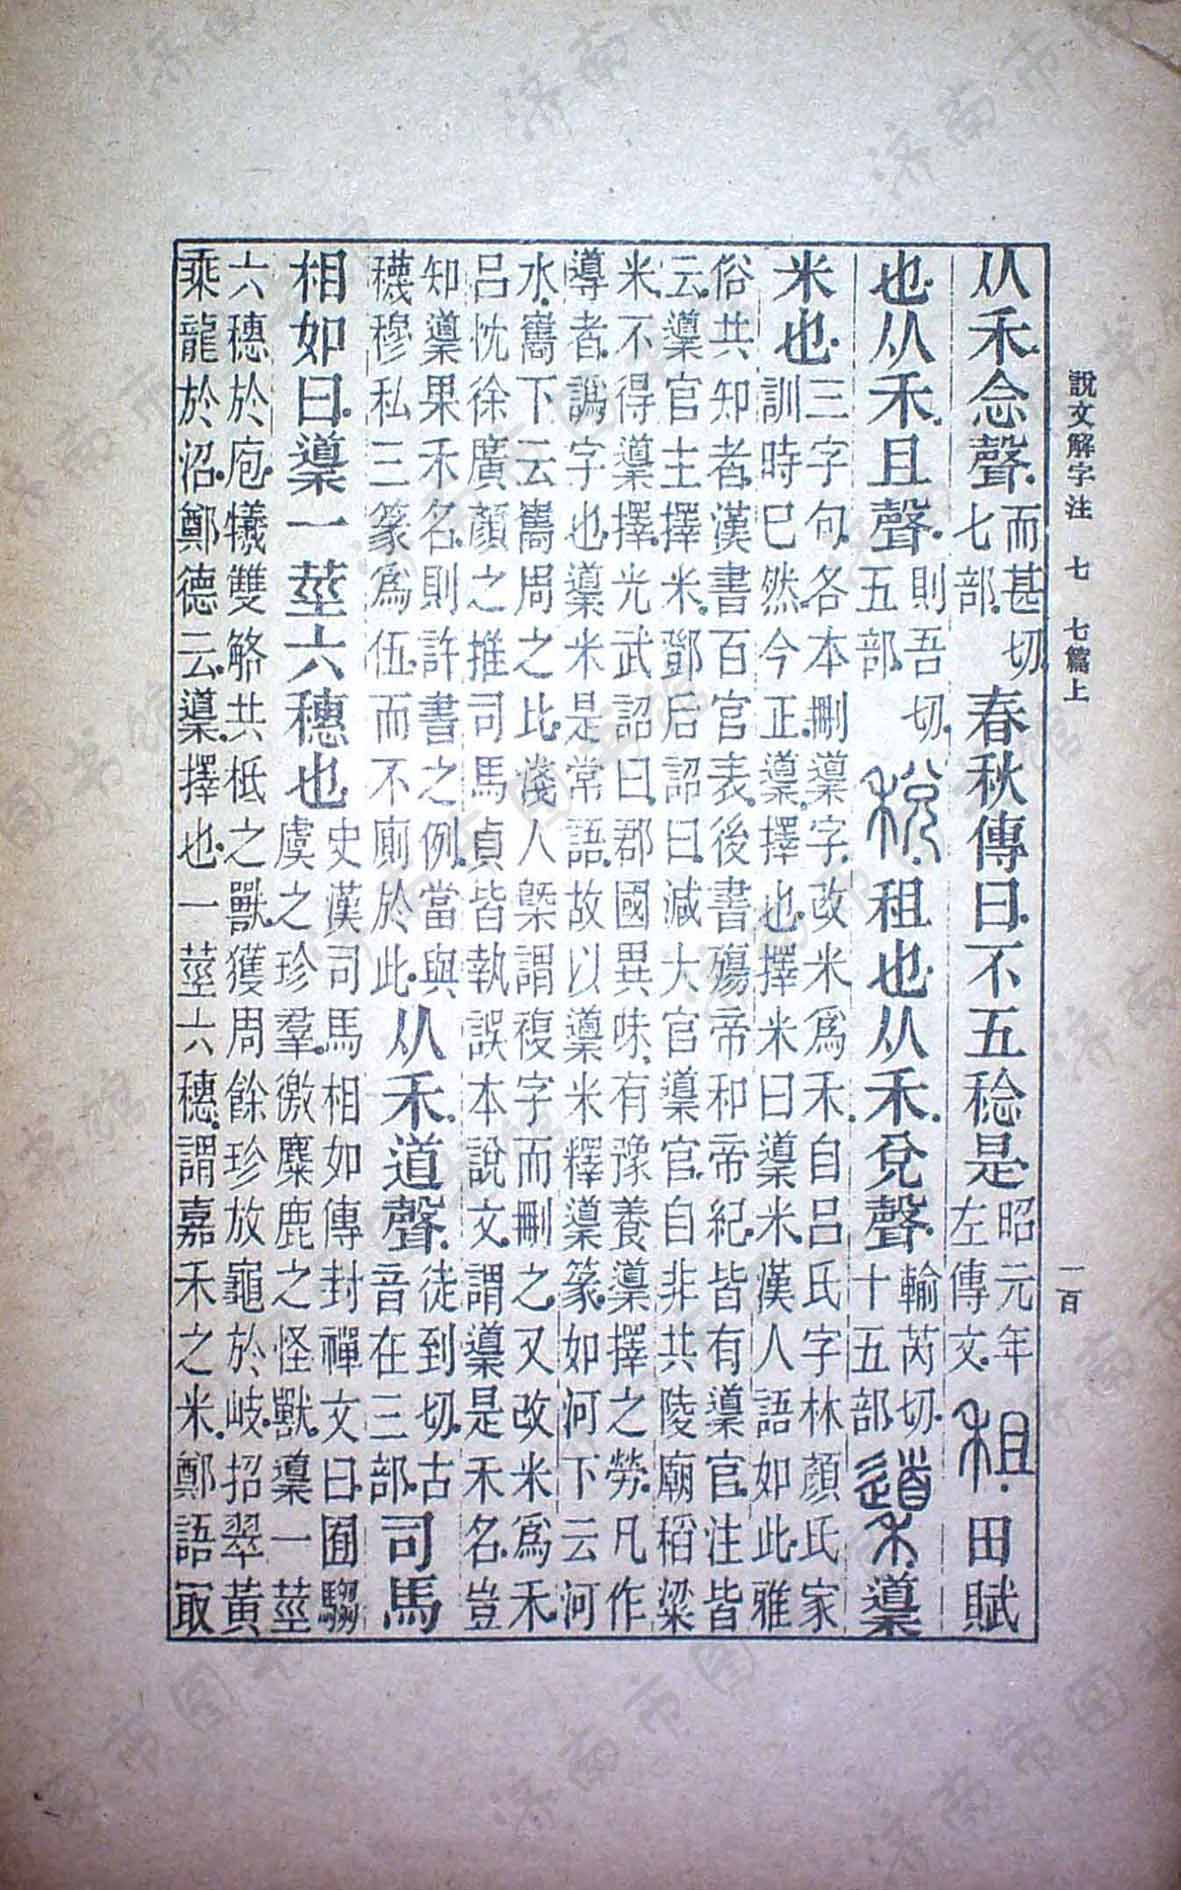 說文解字注 七 七篇上 一百
从禾.念聲.而甚切.七部.春秋傳曰.不五稔是.昭元年左傳文.租.田賦
也.从禾.且聲.則吾切.五部.稅.租也.从禾.兌聲.輸芮切.十五部.䆃.䆃
米也.三字句.各本刪䆃字.改米爲禾.自呂氏字林顏氏家
訓時已然.今正.䆃.擇也.擇米曰䆃米.漢人語如此.雅
俗共知者.漢書百官表.後書殤帝和帝紀.皆有䆃官.注皆
云.䆃官主擇米.鄧后詔曰.減大官䆃官.自非共陵廟稻粱
米.不得䆃擇.光武詔曰.郡國異味.有豫養䆃擇之勞.凡作
導者.譌字也.䆃米是常語.故以䆃米釋䆃篆.如河下云河
水.巂下云巂周之比.淺人槩謂複字而刪之.又改米爲禾.
呂忱徐廣顏之推司馬貞皆執誤本說文.謂䆃是禾名.豈
知䆃果禾名.則許書之例.當與
穖穆私三篆爲伍.而不廁於此.从禾.道聲.徒到切.古音在三部.司馬
相如曰.䆃一莖六穗也.史漢司馬相如傳封禪文曰.囿騶
虞之珍羣.徼麋鹿之怪獸.䆃一莖
六穗於庖.犧雙觡共柢之獸.獲周餘珍放龜於岐.招翠黃
乘龍於沼.鄭德云.䆃.擇也.一莖六穗.謂嘉禾之米.鄭語取